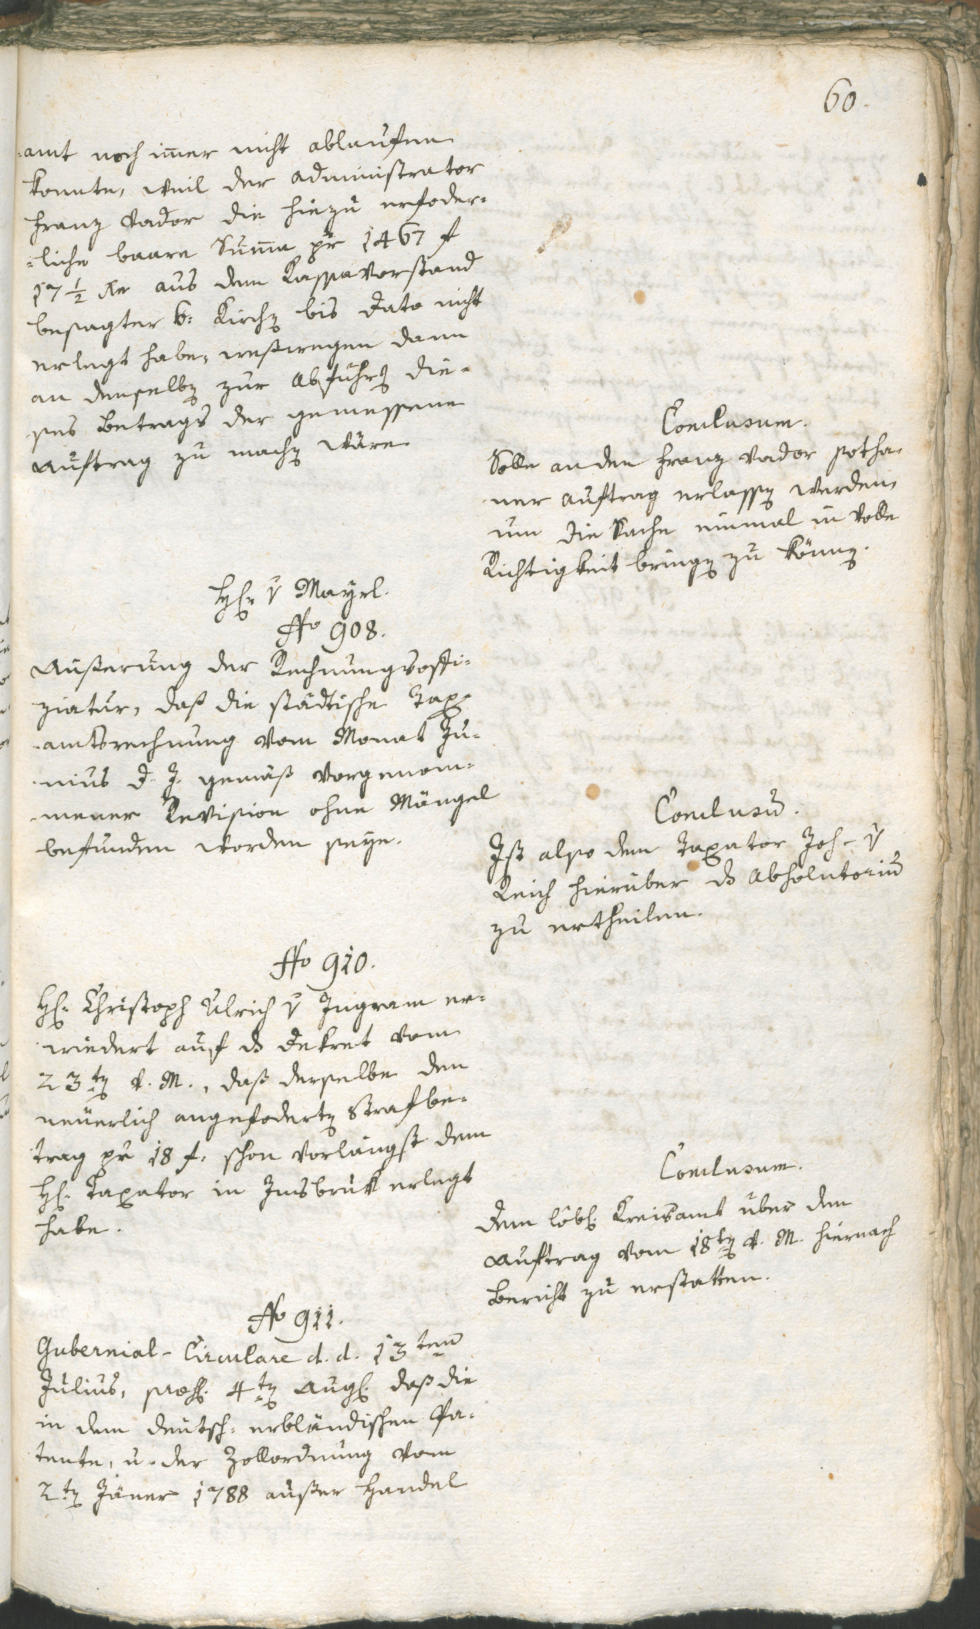 60.
-amt noch im̅er nicht ablaufen
konnte, weil der Administrator
Franz Vador die hiezu erfoder-
-liche baare Sum̅a pr 1467 f
17 1/2 Xr aus dem Kassavorstand
besagter 6: Kirchen bis Dato nicht
erlegt habe, weßwegen dann
an denselben zur Abfuhrg die-
ses Betrags der gemessene
Auftrag zu machen wäre.
Conclusum.
Solle an den Franz Vador sotha-
ner Auftrag erlassen werden,
um die Sache einmal in volle
Richtigkeit bringen zu können.
Hr v Mayrl.
No 908.
Äußerung der Rechnungsoffi-
ziatur, daß die städtische Tax-
-amtsrechnung vom Monat Ju-
nius d. J. gemäß vorgenom-
mener Revision ohne Mängel
befunden worden seye.
Conclusu̅.
Ist also dem Taxator Joh. v
Reich hierüber ds Absolutoriu̅
zu ertheilen.
No 910.
H: Christoph Ulrich v Ingram er-
wiedert auf ds Dekret vom
23ten v. M., daß derselbe den
neuerlich angefoderten Strafbe-
trag pr 18 f. schon vorlängst dem
H: Taxator in Insbruk erlegt
habe.
Conclusum.
Dem löbl: Kreisamt über den
Auftrag vom 18ten v. M. hiernach
Bericht zu erstatten.
No 911.
Gubernial-Circulare d. d. 13ten
Julius, præs: 4ten Aug: daß die
in dem deutsch-erbländischen Pa-
tente, u. der Zollordnung vom
2ten Jäner 1788 außer Handel